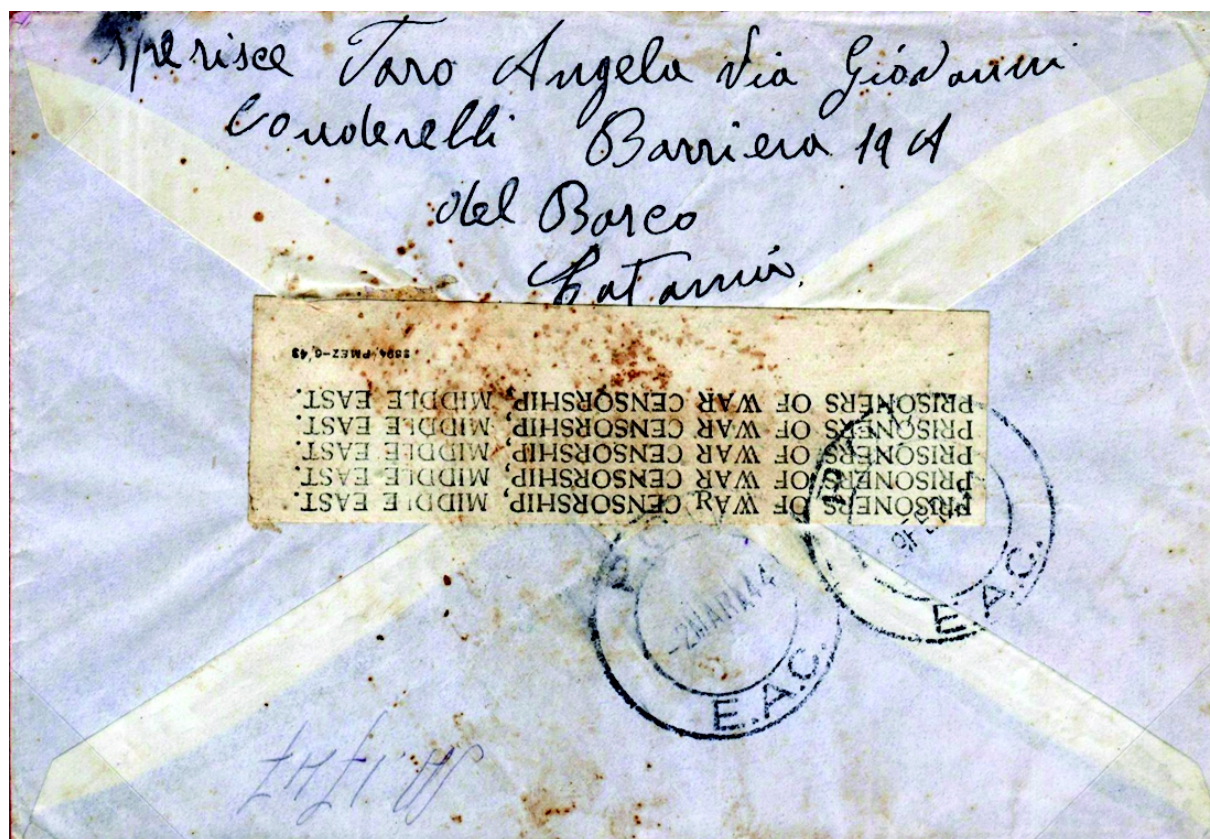 Sperisce Taro Angela Via Giovanni
Conderelli Barriera 19 A
del Bosco
Catania
2594/PMEZ-6/43
PRISONERS OF WAR CENSORSHIP, MIDDLE EAST.
PRISONERS OF WAR CENSORSHIP, MIDDLE EAST.
PRISONERS OF WAR CENSORSHIP, MIDDLE EAST.
PRISONERS OF WAR CENSORSHIP, MIDDLE EAST.
PRISONERS OF WAR CENSORSHIP, MIDDLE EAST.
E.A.C.
-2MAR44
E.A.C.